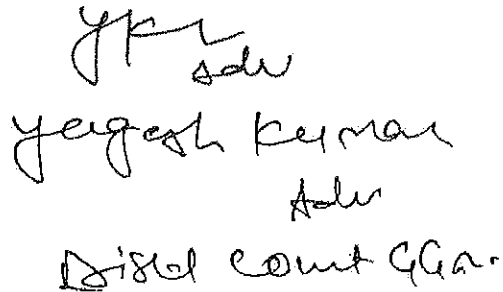 Adv
Yogesh Kumar
Adv
Distt Court GGn.